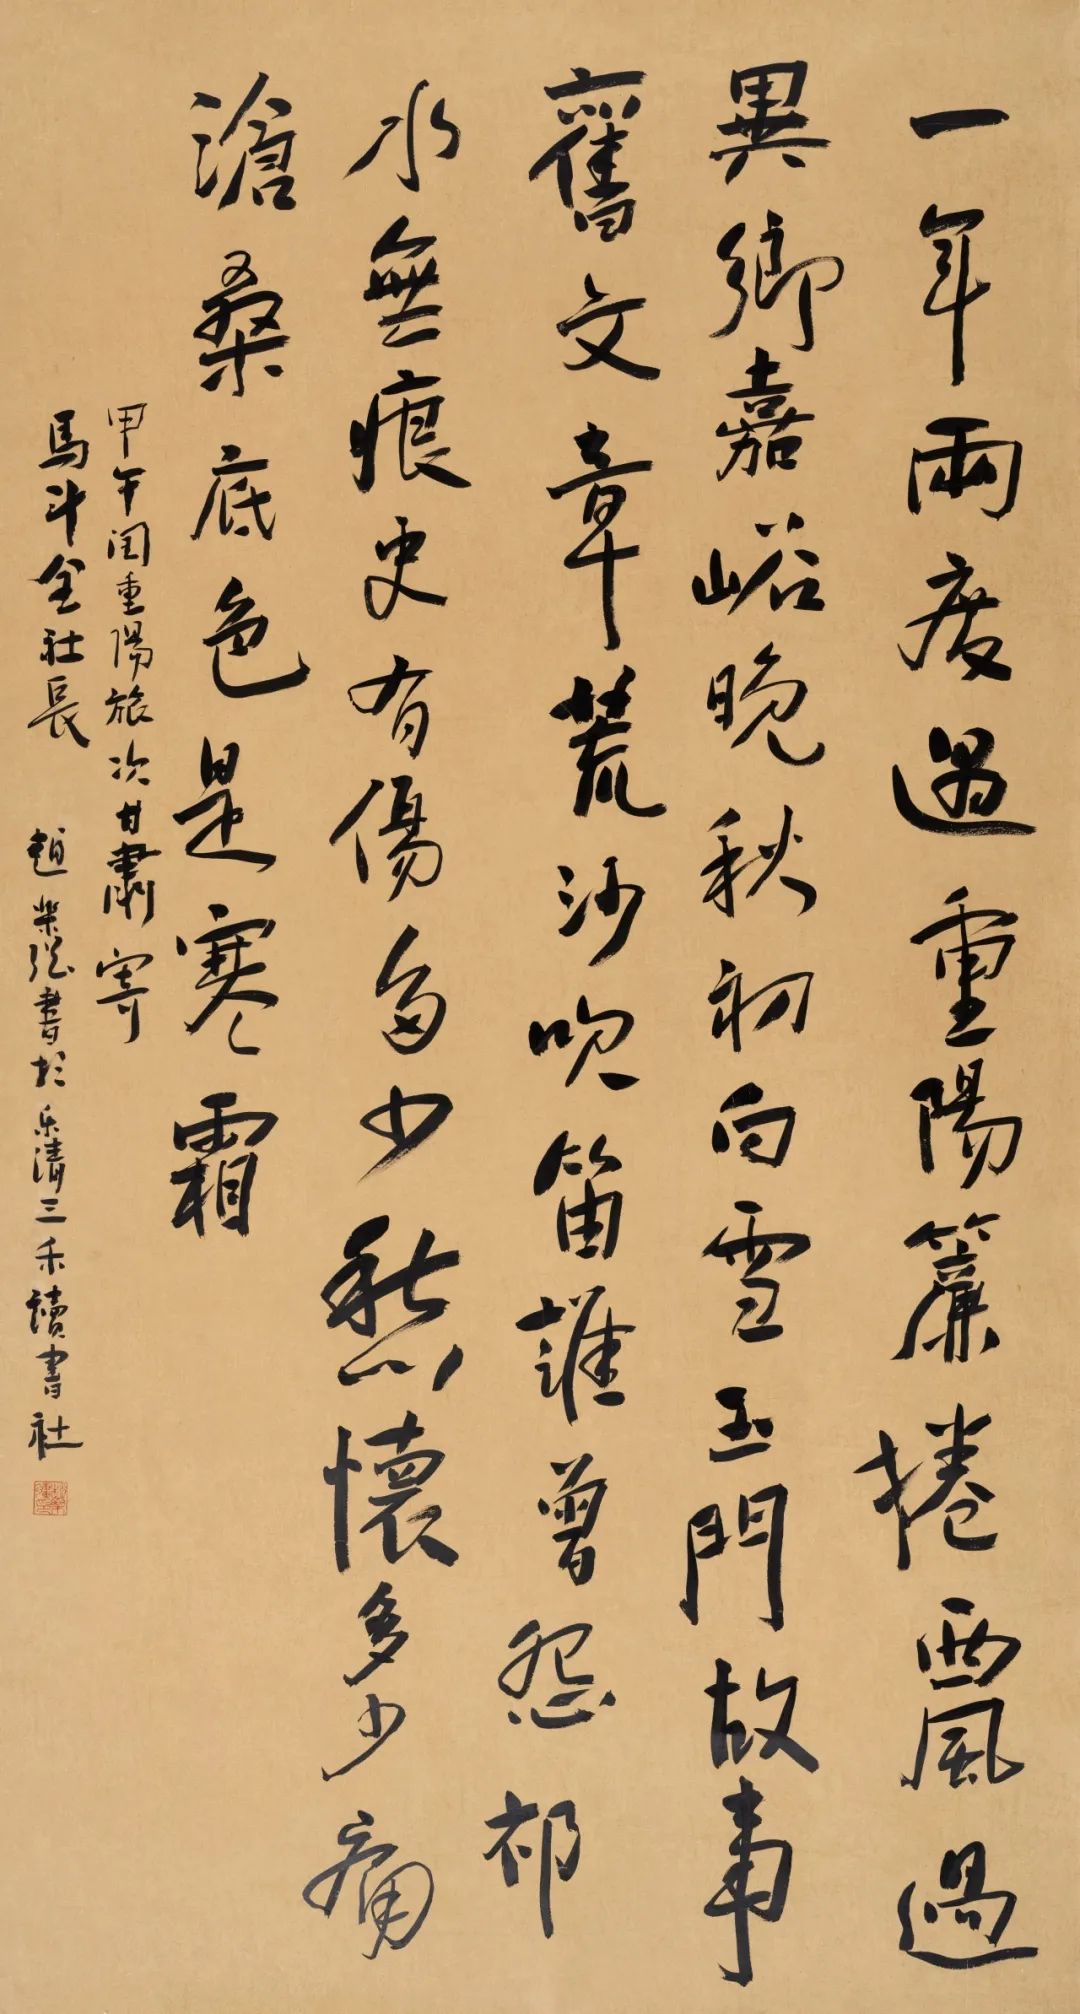 一年兩度過重陽簾捲西風過
異鄉嘉峪晚秋初白雪玉門故事
舊文章荒沙吹笛誰曾怨祁
水無痕史有傷多少愁懷多少痛
滄桑底色是寒霜
甲午闰重陽旅次甘肅寄
馬斗全社長 趙樂強書於乐清三禾讀書社